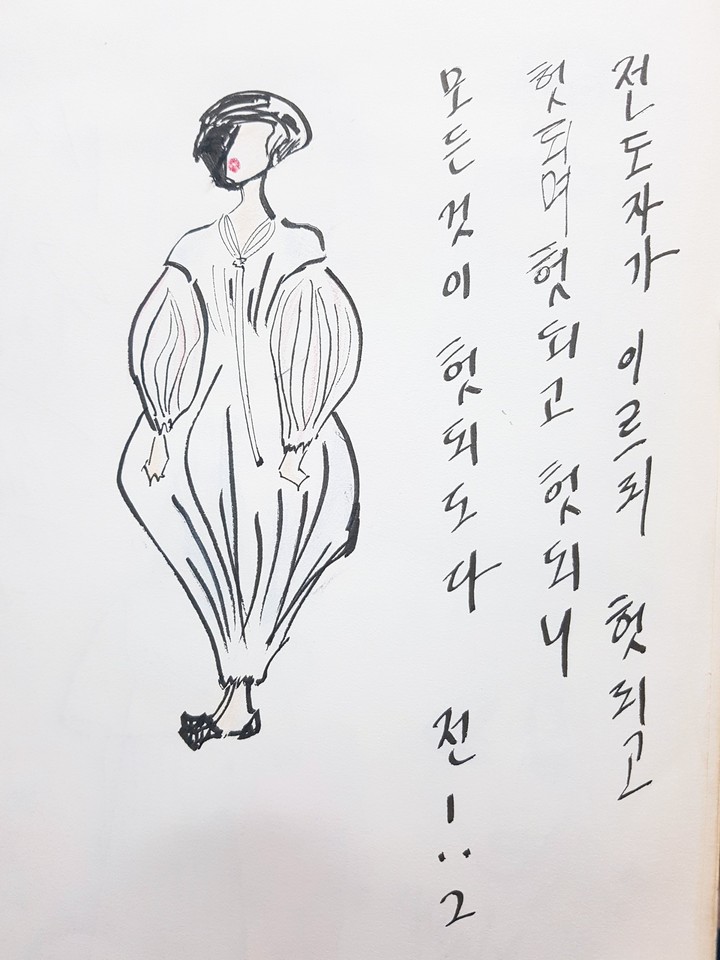 전도자가 이르되 헛되고
헛되며 헛되고 헛되니
모든것이 헛되도다 전 1:2